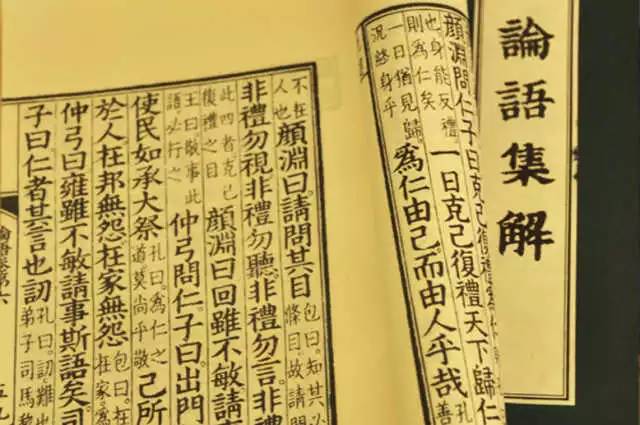 論語集解
顏淵問仁子曰克己復禮
也身能反禮
則為仁矣
一日克己復禮天下歸仁
一日猶見歸
況終身乎
為仁由己而由人乎哉
孔
善
不在
人也
顏淵曰請問其目
包曰知其必
條目故請
非禮勿視非禮勿聽非禮勿言非禮
此四者克己
復禮之目
顏淵曰回雖不敏請
王曰敬事此
語必行之
仲弓問仁子曰出門
使民如承大祭
孔曰為仁之
道莫尚乎敬
己所
於人在邦無怨在家無怨
包曰在
在家為
仲弓曰雍雖不敏請事斯語矣司
子曰仁者其言也訒
孔曰訒難也
弟子司馬